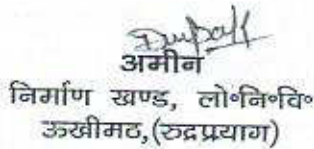 अमीन
निर्माण खण्ड, लो॰नि॰वि॰
ऊखीमठ,(रुद्रप्रयाग)